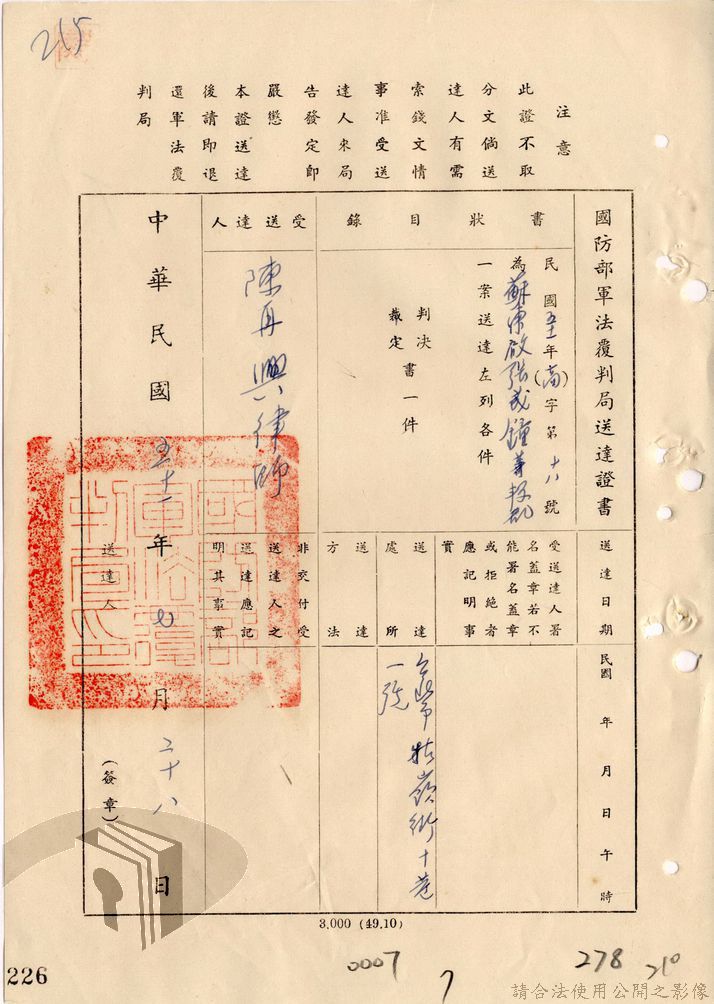 215
注意
此證不取
分文倘送
達人有需
索錢文情
事准受送
達人來局
告發定即
嚴懲
本證送達
後請即退
還軍法覆
判局
國防部軍法覆判局送達證書
書狀目錄
民國五十一年(高)字第十八號
為蘇東啟張茂鐘等叛亂
一案送達左列各件
判決
裁定
書一件
受送達人
陳再興律師
送達日期
民國 年 月 日 午 時
受送達人署
名蓋章若不
能署名蓋章
或拒絕者
應記明事
實
送達處所
台北市牯嶺街十巷
一號
送達方法
非交付受
送達人之
送達應記
明其事實
中華民國五十一年七月二十八日
送達人
(簽章)
國防部
軍法覆
判局印
3,000 (49.10)
226
0007
7
278
210
請合法使用公開之影像